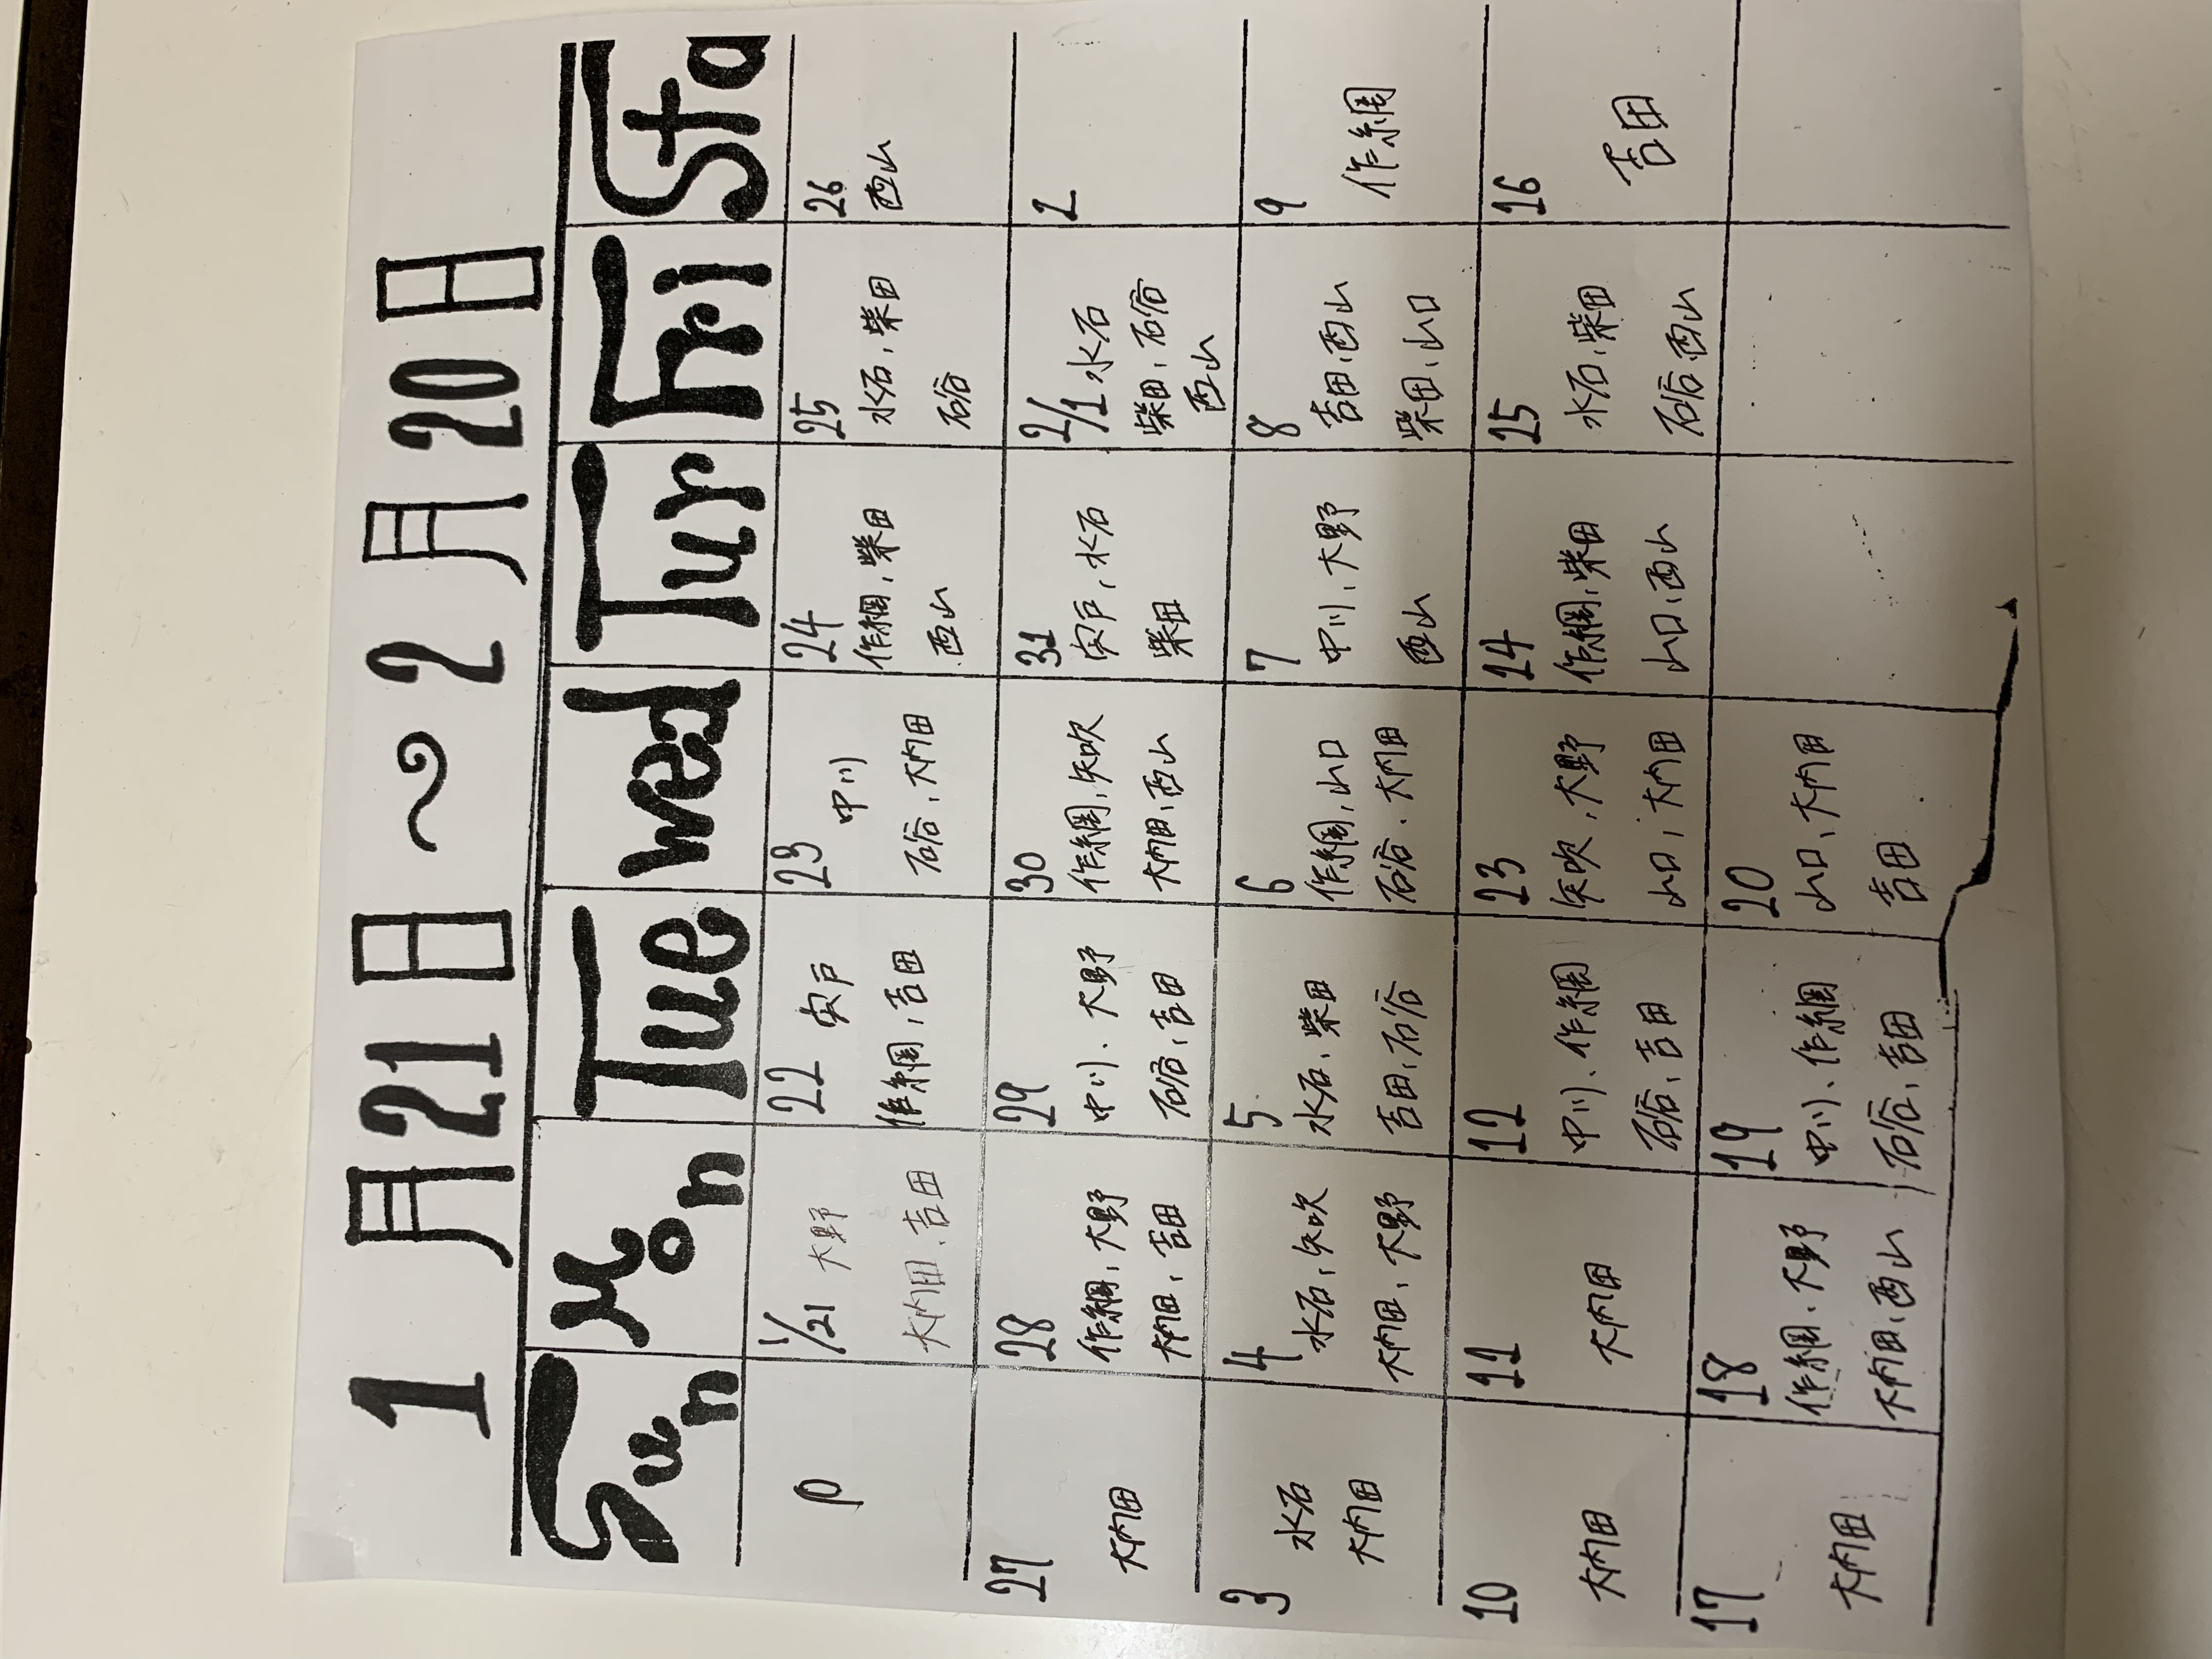 1月21日〜2月20日
Sun Mon Tue wed Tur Fri Sta
ρ
1/21 大野
大内田、吉田
22 宍戸
作網、吉田
23 中川
石谷、大内田
24
作網、柴田
西山
25
水石、柴田
石谷
26
西山
27
大内田
28
作網、大野
大内田、吉田
29
中川、大野
石谷、吉田
30
作網、矢吹
大内田、西山
31
宍戸、水石
柴田
2/1 水石
柴田、石谷
西山
2
3
水石
大内田
4
水石、矢吹
大内田、大野
5
水石、柴田
吉田、石谷
6
作網、山口
石谷、大内田
7
中川、大野
西山
8
吉田、西山
柴田、山口
9
作網
10
大内田
11
大内田
12
中川、作網
石谷、吉田
23
矢吹、大野
山口、大内田
14
作網、柴田
山口、西山
25
水石、柴田
石谷、西山
16
吉田
17
大内田
18
作網、大野
大内田、西山
19
中川、作網
石谷、吉田
20
山口、大内田
吉田